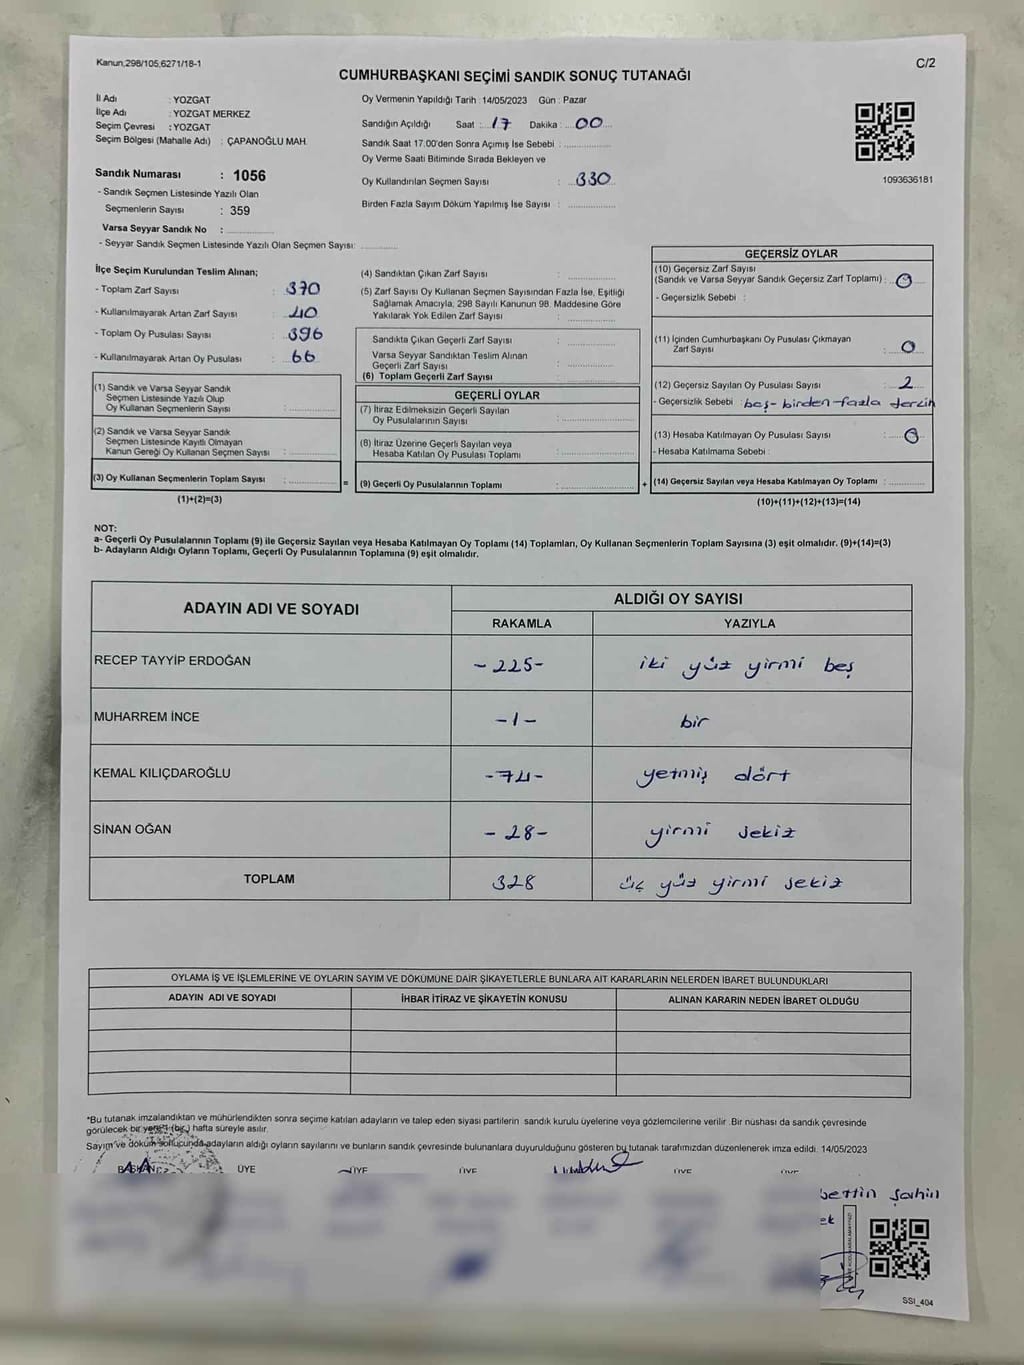 Kanun,298/105,6271/18-1
C/2
CUMHURBAŞKANI SEÇİMİ SANDIK SONUÇ TUTANAĞI
İl Adı : YOZGAT
İlçe Adı : YOZGAT MERKEZ
Seçim Çevresi : YOZGAT
Seçim Bölgesi (Mahalle Adı) : ÇAPANOĞLU MAH.
Sandık Numarası : 1056
- Sandık Seçmen Listesinde Yazılı Olan
Seçmenlerin Sayısı : 359
Varsa Seyyar Sandık No :
- Seyyar Sandık Seçmen Listesinde Yazılı Olan Seçmen Sayısı:
Oy Vermenin Yapıldığı Tarih : 14/05/2023 Gün : Pazar
Sandığın Açıldığı Saat : 17 Dakika : 00
Sandık Saat 17.00'den Sonra Açımış İse Sebebi :
Oy Verme Saati Bitiminde Sırada Bekleyen ve
Oy Kullandırılan Seçmen Sayısı : 330
Birden Fazla Sayım Döküm Yapılmış İse Sayısı :
1093636181
İlçe Seçim Kurulundan Teslim Alınan;
- Toplam Zarf Sayısı : 370
- Kullanılmayarak Artan Zarf Sayısı : 40
- Toplam Oy Pusulası Sayısı : 396
- Kullanılmayarak Artan Oy Pusulası : 66
(1) Sandık ve Varsa Seyyar Sandık
Seçmen Listesinde Yazılı Olup
Oy Kullanan Seçmenlerin Sayısı :
(2) Sandık ve Varsa Seyyar Sandık
Seçmen Listesinde Kayıtlı Olmayan
Kanun Gereği Oy Kullanan Seçmen Sayısı :
(3) Oy Kullanan Seçmenlerin Toplam Sayısı :
(1)+(2)=(3)
(4) Sandıktan Çıkan Zarf Sayısı :
(5) Zarf Sayısı Oy Kullanan Seçmen Sayısından Fazla İse, Eşitliği
Sağlamak Amacıyla, 298 Sayılı Kanunun 98. Maddesine Göre
Yakılarak Yok Edilen Zarf Sayısı :
Sandıkta Çıkan Geçerli Zarf Sayısı :
Varsa Seyyar Sandıktan Teslim Alınan
Geçerli Zarf Sayısı :
(6) Toplam Geçerli Zarf Sayısı :
GEÇERLİ OYLAR
(7) İtiraz Edilmeksizin Geçerli Sayılan
Oy Pusulalarının Sayısı :
(8) İtiraz Üzerine Geçerli Sayılan veya
Hesaba Katılan Oy Pusulası Toplamı :
= (9) Geçerli Oy Pusulalarının Toplamı :
GEÇERSİZ OYLAR
(10) Geçersiz Zarf Sayısı
(Sandık ve Varsa Seyyar Sandık Geçersiz Zarf Toplamı) : 0
- Geçersizlik Sebebi :
(11) İçinden Cumhurbaşkanı Oy Pusulası Çıkmayan
Zarf Sayısı : 0
(12) Geçersiz Sayılan Oy Pusulası Sayısı : 2
- Geçersizlik Sebebi : boş- birden-fazla tercih
(13) Hesaba Katılmayan Oy Pusulası Sayısı : 0
- Hesaba Katılmama Sebebi :
+ (14) Geçersiz Sayılan veya Hesaba Katılmayan Oy Toplamı :
(10)+(11)+(12)+(13)=(14)
NOT:
a- Geçerli Oy Pusulalarının Toplamı (9) ile Geçersiz Sayılan veya Hesaba Katılmayan Oy Toplamı (14) Toplamları, Oy Kullanan Seçmenlerin Toplam Sayısına (3) eşit olmalıdır. (9)+(14)=(3)
b- Adayların Aldığı Oyların Toplamı, Geçerli Oy Pusulalarının Toplamına (9) eşit olmalıdır.
ADAYIN ADI VE SOYADI ALDIĞI OY SAYISI
RAKAMLA YAZIYLA
RECEP TAYYİP ERDOĞAN -225- iki yüz yirmi beş
MUHARREM İNCE -1- bir
KEMAL KILIÇDAROĞLU -74- yetmiş dört
SİNAN OĞAN -28- yirmi sekiz
TOPLAM 328 üç yüz yirmi sekiz
OYLAMA İŞ VE İŞLEMLERİNE VE OYLARIN SAYIM VE DÖKÜMÜNE DAİR ŞİKAYETLERLE BUNLARA AİT KARARLARIN NELERDEN İBARET BULUNDUKLARI
ADAYIN ADI VE SOYADI İHBAR İTİRAZ VE ŞİKAYETİN KONUSU ALINAN KARARIN NEDEN İBARET OLDUĞU
*Bu tutanak imzalandıktan ve mühürlendikten sonra seçime katılan adayların ve talep eden siyasi partilerin sandık kurulu üyelerine veya gözlemcilerine verilir. Bir nüshası da sandık çevresinde
görülecek bir yere 1 (bir) hafta süreyle asılır.
Sayım ve döküm sonucunda adayların aldığı oyların sayılarını ve bunların sandık çevresinde bulunanlara duyurulduğunu gösteren bu tutanak tarafımızdan düzenlenerek imza edildi. 14/05/2023
BAŞKAN ÜYE ÜYE ÜYE ÜYE ÜYE
bettin şahin
SSI_404